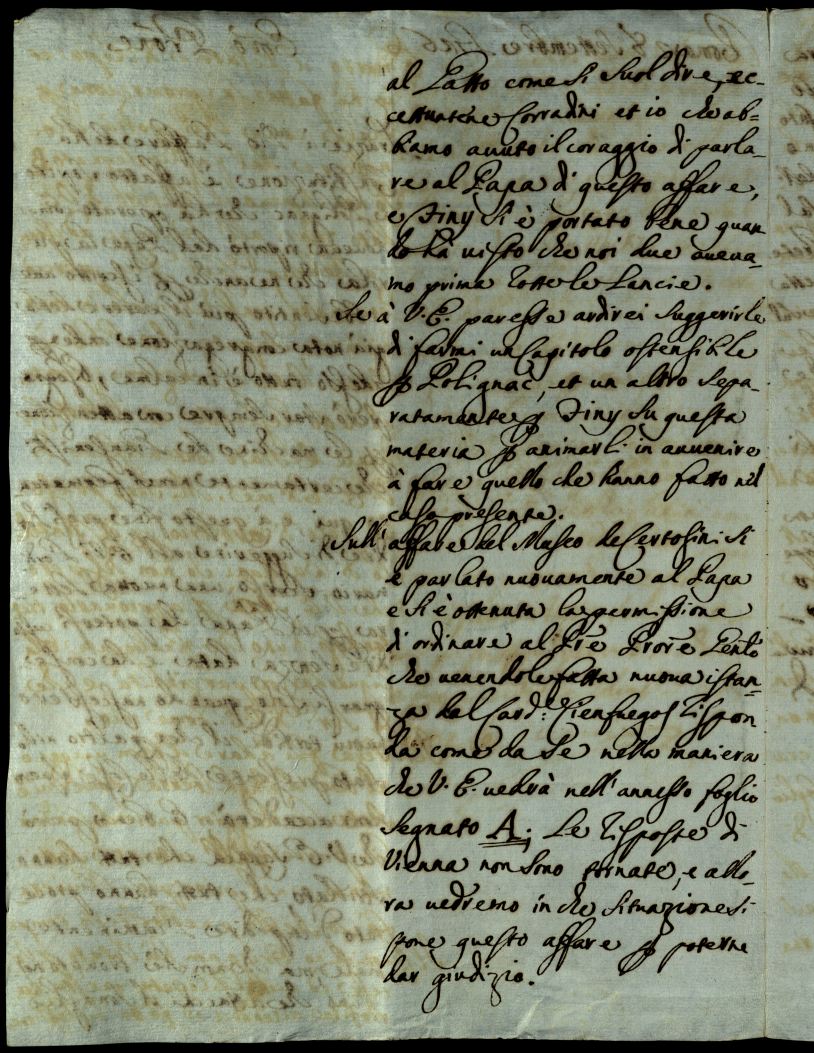 al Patto come si suol dire, ec-
cettuatene Corradini et io che ab=
biamo avuto il coraggio di parla-
re al Papa di questo affare,
e Finy si è portato bene quan
do hà visto che noi due aveva-
mo prima rotte le Lancie.
Se à V.E. paresse ardirei suggerirle
di farmi un Capitolo ostensibile
p Polignac, et un altro sepa-
ratamente p Finy su questa
materia p animarli in avvenire
à fare quello che hanno fatto nel
caso presente.
Sull' affare del Museo de Certosini si
è parlato nuovamente al Papa
e si è ottenuta la permissione
di ordinare al Prē Prorē Gentī
che venendole fatta nuova istan-
za dal Card.l Cienfuegos rispon
da come da se nella maniera
che V.E. vedrà nell'annesso foglio
segnato A; Le risposte di
Vienna non sono tornate, e allo-
ra vedremo in che situazione si
pone questo affare p poterne
dar giudizio.